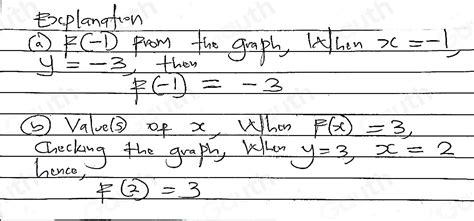 Explanation
(a) F(-1) From the graph, When x = -1,
y = -3, then
F(-1) = -3
(b) Value(s) of x, When F(x) = 3,
Checking the graph, When y = 3, x = 2
hence,
F(2) = 3